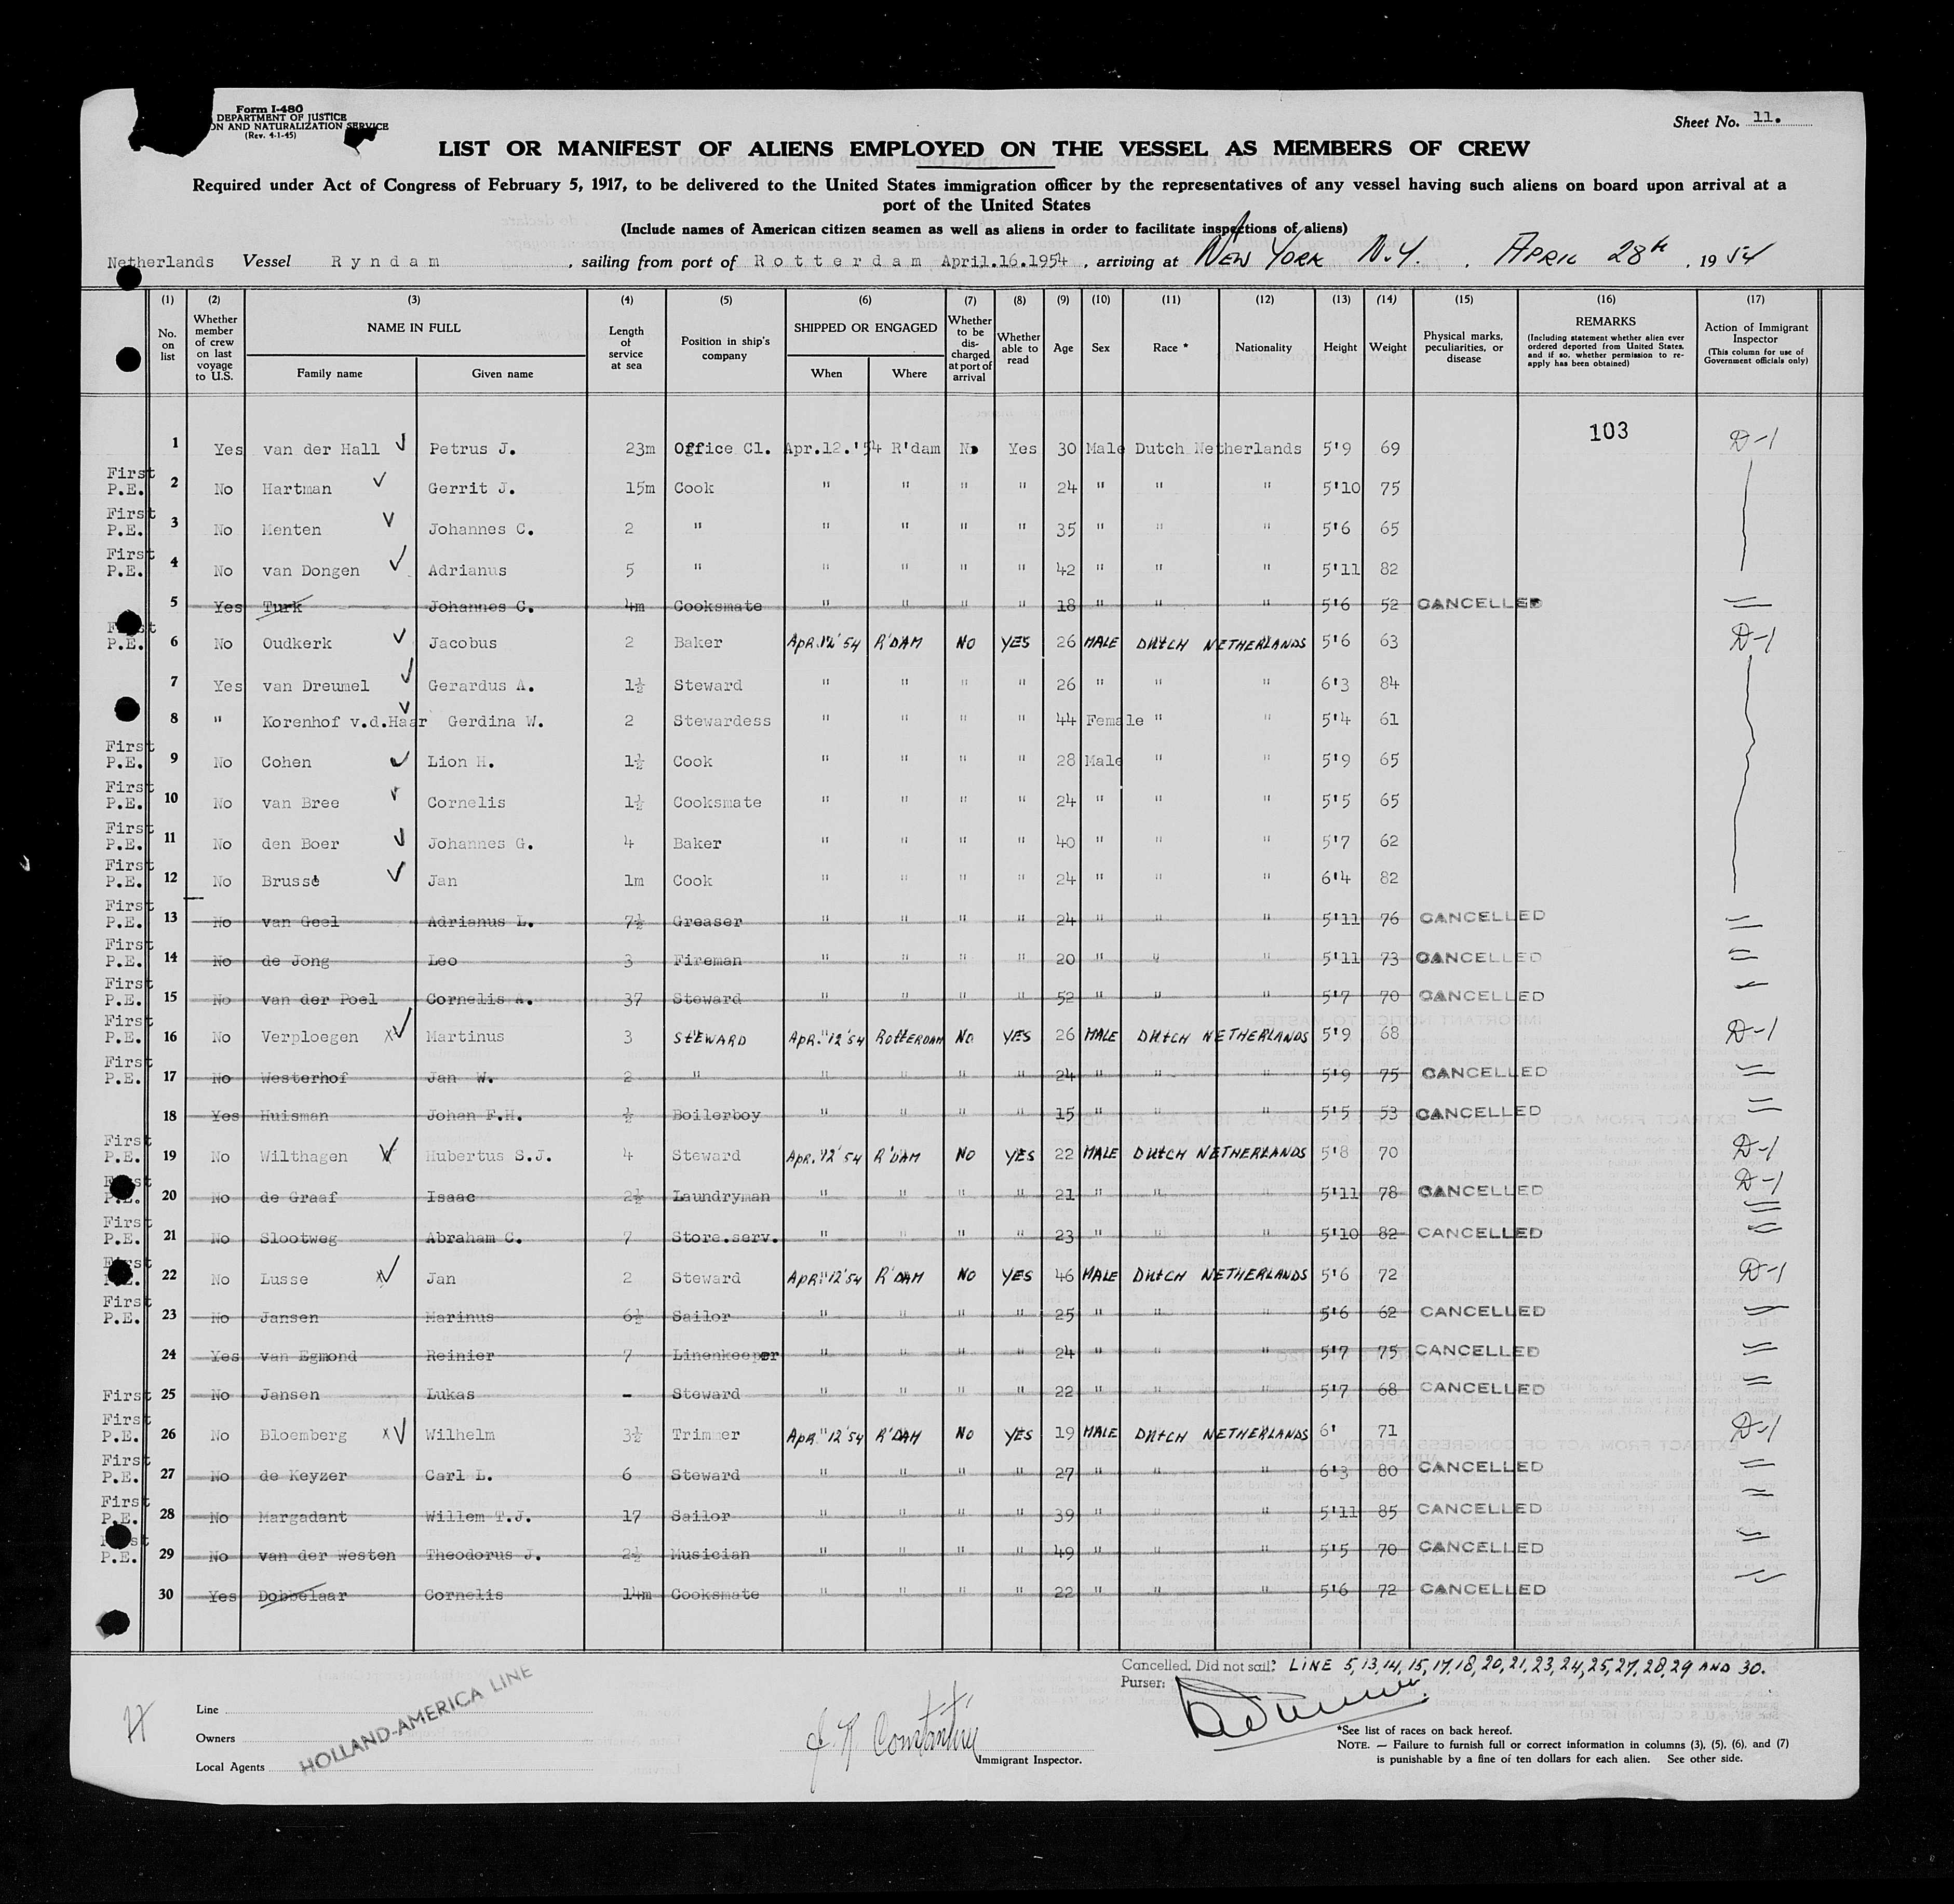 Form I-480
DEPARTMENT OF JUSTICE
ON AND NATURALIZATION SERVICE
(Rev. 4-1-45)
Sheet No. 11.
LIST OR MANIFEST OF ALIENS EMPLOYED ON THE VESSEL AS MEMBERS OF CREW
Required under Act of Congress of February 5, 1917, to be delivered to the United States immigration officer by the representatives of any vessel having such aliens on board upon arrival at a
port of the United States
(Include names of American citizen seamen as well as aliens in order to facilitate inspections of aliens)
Netherlands Vessel Ryndam, sailing from port of Rotterdam April.16.1954, arriving at NEW YORK N.Y., APRIL 28th, 1954
(1) (2) (3) (4) (5) (6) (7) (8) (9) (10) (11) (12) (13) (14) (15) (16) (17)
No. on list
Whether member of crew on last voyage to U.S.
NAME IN FULL
Family name
Given name
Length of service at sea
Position in ship's company
SHIPPED OR ENGAGED
When
Where
Whether to be discharged at port of arrival
Whether able to read
Age
Sex
Race *
Nationality
Height
Weight
Physical marks, peculiarities, or disease
REMARKS
(Including statement whether alien ever ordered deported from United States, and if so, whether permission to reapply has been obtained)
Action of Immigrant Inspector
(This column for use of Government officials only)
103
1 Yes van der Hall Petrus J. 23m Office Cl. Apr.12.'54 R'dam No Yes 30 Male Dutch Netherlands 5'9 69 D-1
First P.E. 2 No Hartman Gerrit J. 15m Cook " " " " 24 " " " 5'10 75
First P.E. 3 No Menten Johannes C. 2 " " " " " 35 " " " 5'6 65
First P.E. 4 No van Dongen Adrianus 5 " " " " " 42 " " " 5'11 82
5 Yes Turk Johannes C. 4m Cooksmate " " " " 18 " " " 5'6 52 CANCELLED
First P.E. 6 No Oudkerk Jacobus 2 Baker APR.12'54 R'DAM NO YES 26 MALE DUTCH NETHERLANDS 5'6 63 D-1
7 Yes van Dreumel Gerardus A. 1½ Steward " " " " 26 " " " 6'3 84
8 " Korenhof v.d.Haar Gerdina W. 2 Stewardess " " " " 44 Female " " 5'4 61
First P.E. 9 No Cohen Lion H. 1½ Cook " " " " 28 Male " " 5'9 65
First P.E. 10 No van Bree Cornelis 1½ Cooksmate " " " " 24 " " " 5'5 65
First P.E. 11 No den Boer Johannes G. 4 Baker " " " " 40 " " " 5'7 62
First P.E. 12 No Brussé Jan 1m Cook " " " " 24 " " " 6'4 82
First P.E. 13 No van Geel Adrianus L. 7½ Greaser " " " " 24 " " " 5'11 76 CANCELLED
First P.E. 14 No de Jong Leo 3 Fireman " " " " 20 " " " 5'11 73 CANCELLED
First P.E. 15 No van der Poel Cornelis A. 37 Steward " " " " 52 " " " 5'7 70 CANCELLED
First P.E. 16 No Verploegen x Martinus 3 STEWARD APR. 12'54 ROTTERDAM NO YES 26 MALE DUTCH NETHERLANDS 5'9 68 D-1
First P.E. 17 No Westerhof Jan W. 2 " " " " " 24 " " " 5'9 75 CANCELLED
18 Yes Huisman Johan F.H. ½ Boilerboy " " " " 15 " " " 5'5 53 CANCELLED
First P.E. 19 No Wilthagen Hubertus S.J. 4 Steward APR. 12'54 R'DAM NO YES 22 MALE DUTCH NETHERLANDS 5'8 70 D-1
First P.E. 20 No de Graaf Isaac 2½ Laundryman " " " " 21 " " " 5'11 78 CANCELLED D-1
First P.E. 21 No Slootweg Abraham C. 7 Store.serv. " " " " 23 " " " 5'10 82 CANCELLED
First P.E. 22 No Lusse x Jan 2 Steward APR. 12'54 R'DAM NO YES 46 MALE DUTCH NETHERLANDS 5'6 72 D-1
First P.E. 23 No Jansen Marinus 6½ Sailor " " " " 25 " " " 5'6 62 CANCELLED
24 Yes van Egmond Reinier 7 Linenkeeper " " " " 24 " " " 5'7 75 CANCELLED
First 25 No Jansen Lukas - Steward " " " " 22 " " " 5'7 68 CANCELLED
First P.E. 26 No Bloemberg x Wilhelm 3½ Trimmer APR. 12'54 R'DAM NO YES 19 MALE DUTCH NETHERLANDS 6' 71 D-1
First P.E. 27 No de Keyzer Carl L. 6 Steward " " " " 27 " " " 6'3 80 CANCELLED
First P.E. 28 No Margadant Willem T.J. 17 Sailor " " " " 39 " " " 5'11 85 CANCELLED
First P.E. 29 No van der Westen Theodorus J. 2½ Musician " " " " 49 " " " 5'5 70 CANCELLED
30 Yes Dobbelaar Cornelis 14m Cooksmate " " " " 22 " " " 5'6 72 CANCELLED
Cancelled. Did not sail: LINE 5,13,14,15,17,18,20,21,23,24,25,27,28,29 AND 30.
Purser:
H
Line
Owners
Local Agents
HOLLAND-AMERICA LINE
J. N. Constantine
Immigrant Inspector.
*See list of races on back hereof.
NOTE. — Failure to furnish full or correct information in columns (3), (5), (6), and (7)
is punishable by a fine of ten dollars for each alien. See other side.